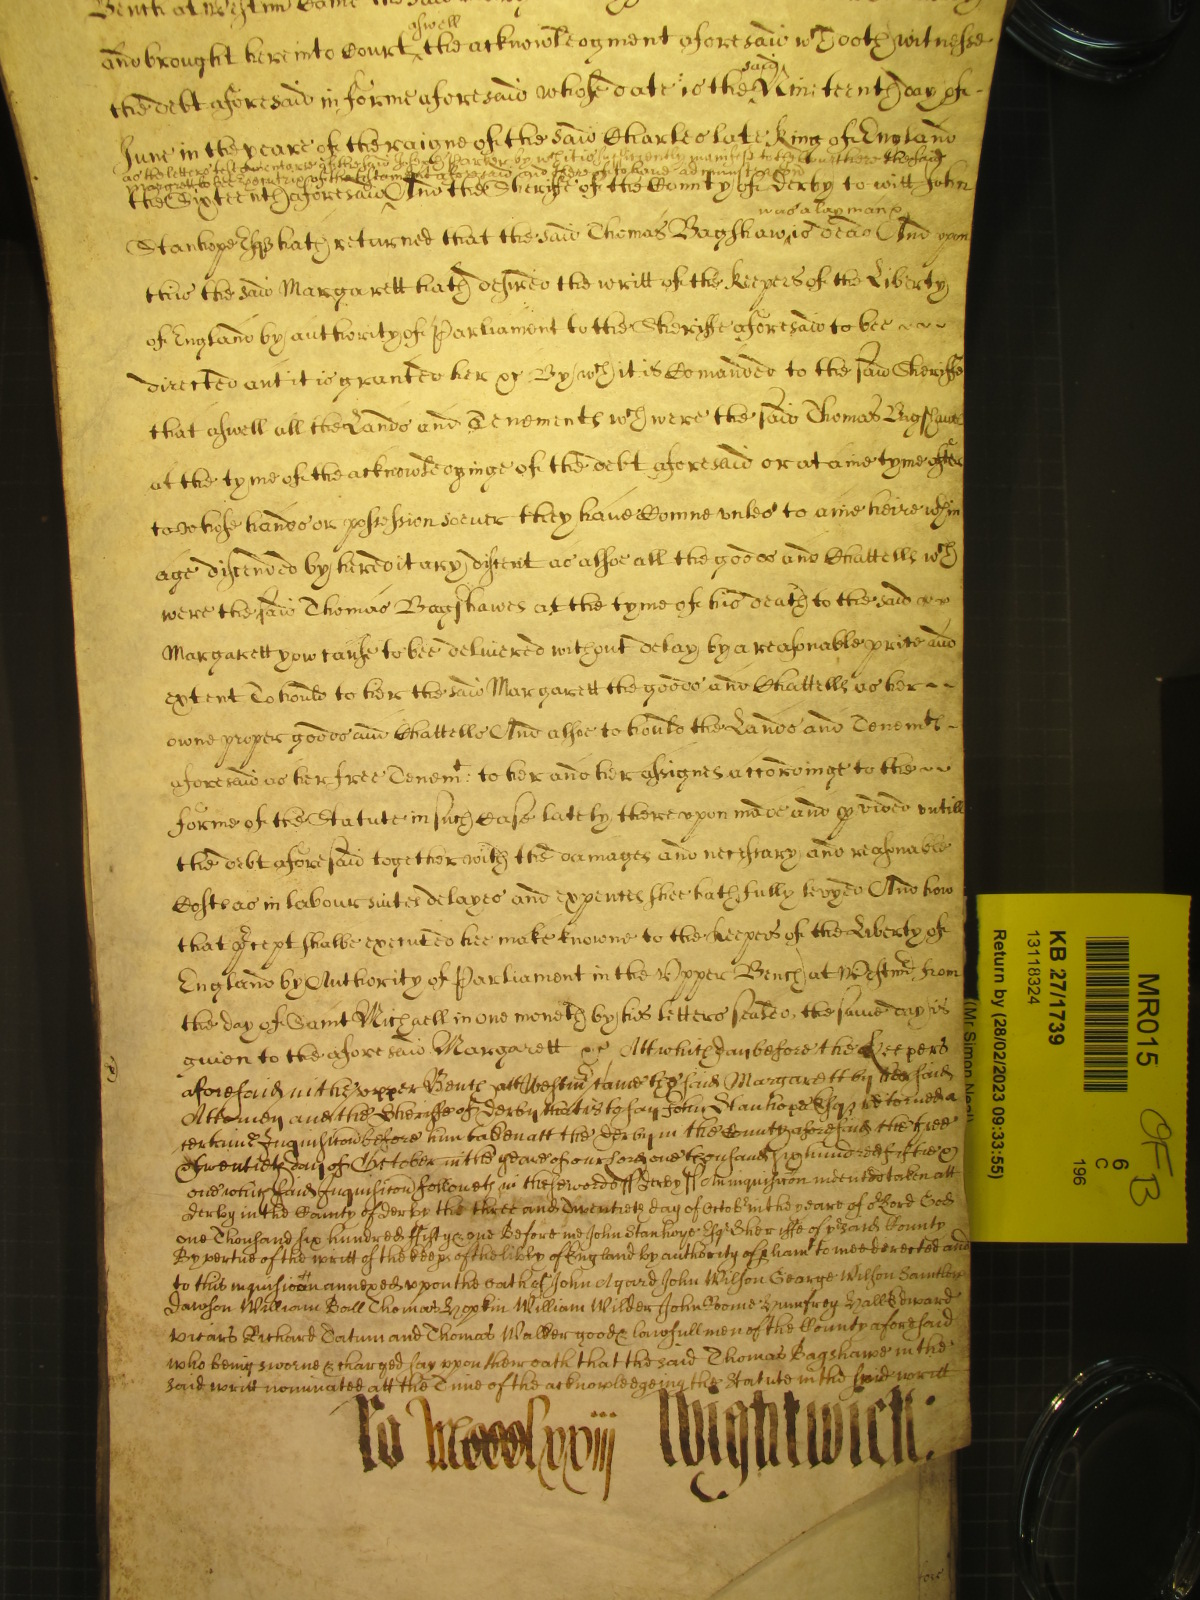 Bench at Westm Came the said
aswell
and brought here into Court the acknowledgment aforesaid wch doth witnesse
said
the debt aforesaid in forme aforesaid whose date is the Nineteenth day of
June in the yeare of the raigne of the said Charles late King of England
as the letters testamentary of the said Joseph Parker by wch it is sufficiently manifest to the Court here the said
Margarett to bee executrix of the testament aforesaid and thereof to have administracon
the Sixteenth aforesaid And the Sheriffe of the County of Derby to witt John
was a layman &
Stanhope Esqr hath returned that the said Thomas Bagshaw is dead And upon
this the said Margarett hath desired the writt of the Keepers of the Liberty
of England by authority of Parliament to the Sheriffe aforesaid to bee
directed and it is granted her &c By wch it is Comanded to the said Sheriffe
that aswell all the Lands and Tenements wch were the said Thomas Bagshawes
at the tyme of the acknowledginge of the debt aforesaid or at anie tyme after
to whose hands or possession soever they have Comne unles to anie heire within
age discended by hereditary discent as alsoe all the goods and Chattells wch
were the said Thomas Bagshawes at the tyme of his death to the said
Margarett yow cause to bee delivered without delay by a reasonable price and
extent To hould to her the said Margarett the goods and Chattells as her
owne proper goods and Chattells And alsoe to hould the Lands and Tenemts
aforesaid as her free Tenemt: to her and her assignes accordinge to the
forme of the Statute in such Case lately thereupon made and pvided untill
the debt aforesaid together with the damages and necessary and reasonable
Costs as in labour suites delayes and expences shee hath fully levyed And how
that precept shalbe executed hee make knowne to the Keepers of the Liberty of
England by Authority of Parliament in the Upper Bench at Westmr from
the day of Saint Michaell in one moneth by his letters sealed, the same day is
given to the aforesaid Margarett &c Att which day before the Keepers
aforesaid in the upper Bench att Westmr came the said Margarett by her said
Attorney and the Sheriffe of Derby that is to say John Stanhope Esqr retorned a
certaine Inquisition before him taken att the Derby in the County aforesaid the three
& twentieth day of October in the yeare of our Lord one thousand six hundred fiftie &
one which said Inquisition followeth in these words Derby ss An inquisition indented taken att
Derby in the County of Derby the three and Twentieth day of October in the yeare of or Lord God
one Thousand six hundred fifty & one Before me John Stanhope Esqr Sheriffe of ye said County
By vertue of the writt of the keeps of the lib'ty of England by authority of pliamt to mee directed and
to this inquisicon annexed upon the oath of John Agard John Wilson George Wilson
Dawson William Ball Thomas Hopkin William Wilder John Roome Humfrey Hall Edward
Vicars Richard Tatum and Thomas Walder good & lawfull men of the County aforesaid
who being sworne & charged say uppon their oath that the said Thomas Bagshawe in the
said writt nominated att the Time of the acknowledgeing the Statute in the said writt
Ro Mccccxxiij Wightwick:
MR015
KB 27/1739
13118324
Return by (28/02/2023 09:33:55)
(Mr Simon Neal)
6
C
196
OFB